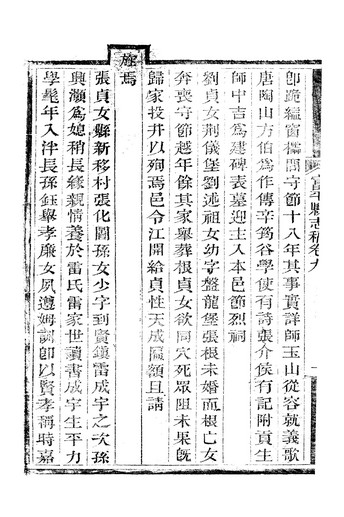 即跪繼窗欞間守節十八年其事實詳師玉山從容就義歌
唐陶山方伯爲作傳辛筠谷學使有詩張介侯有記附貢生
師中吉爲建碑表墓迎主入本邑節烈祠
劉貞女荆儀堡劉述祖女幼字盤龍堡張根未婚而根亡女
奔喪守節越年餘其家舉葬根貞女欲同穴死眾阻未果旣
歸家投井以殉焉邑令江開給貞性天成匾額且請
旌焉
張貞女縣新移村張化圖孫女少字到賢鎭雷成宇之次孫
興灝爲媳稍長緣親情養於雷氏雷家世讀書成宇生平力
學髦年入泮長孫鈺舉孝廉女夙遵姆訓卽以賢孝稱時嘉
富平縣志稿卷九